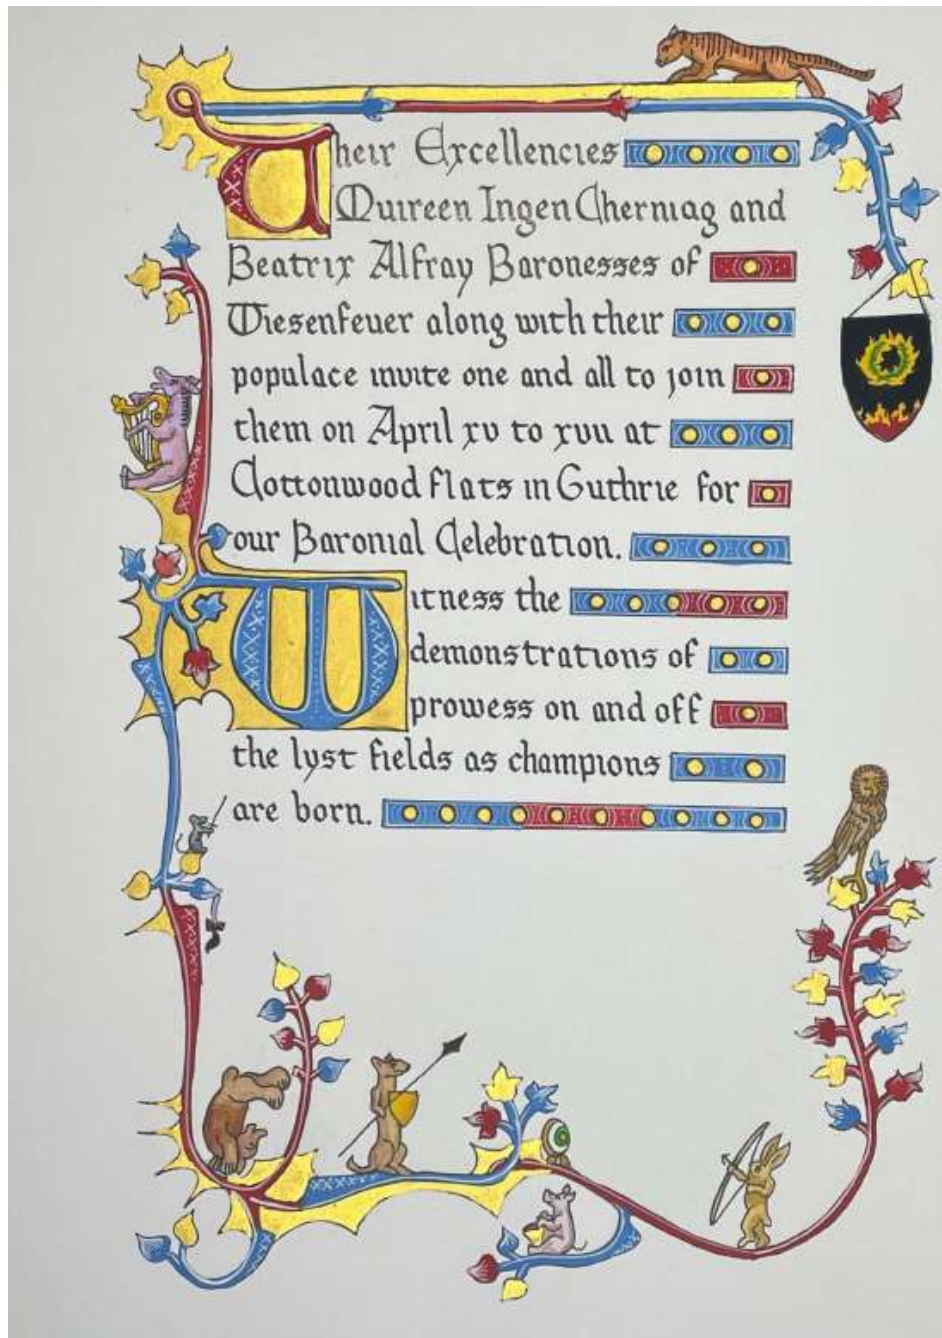 Their Excellencies
Muireen Ingen Cherniag and
Beatrix Alfray Baronesses of
Wiesenfeuer along with their
populace invite one and all to join
them on April xv to xvii at
Cottonwood Flats in Guthrie for
our Baronial Celebration.
Witness the
demonstrations of
prowess on and off
the lyst fields as champions
are born.